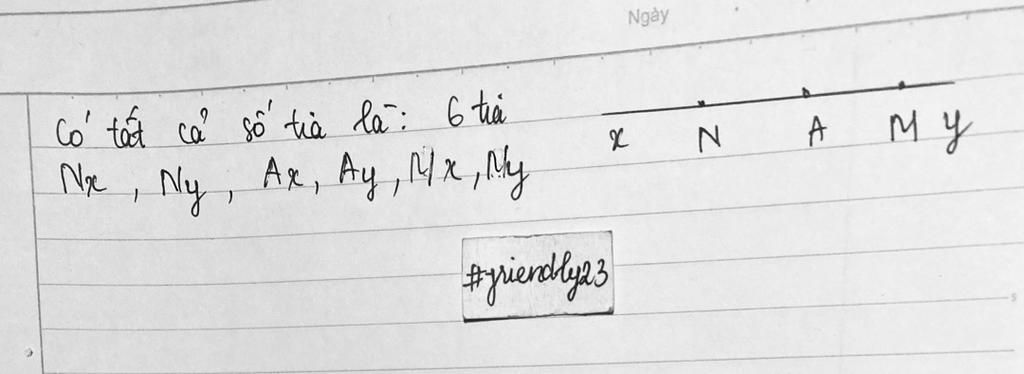 Ngày
Có tất cả số tia là: 6 tia
Nx, Ny, Ax, Ay, Mx, My
x N A M y
#friendly23